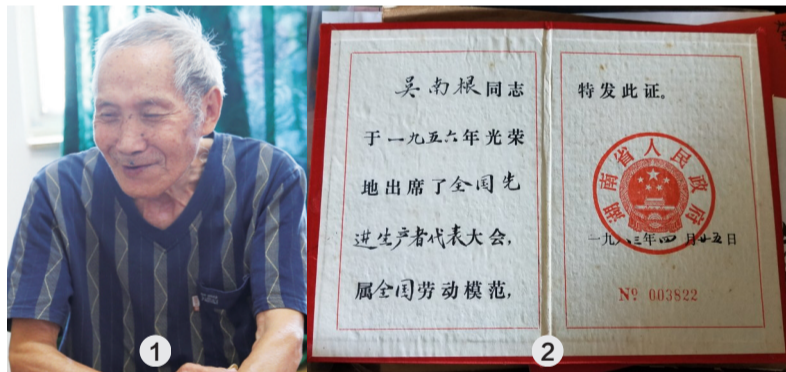 吴南根同志
于一九五六年光荣
地出席了全国先
进生产者代表大会，
属全国劳动模范，
特发此证。
湖南省人民政府
一九八三年四月廿五日
Nº 003822
1
2